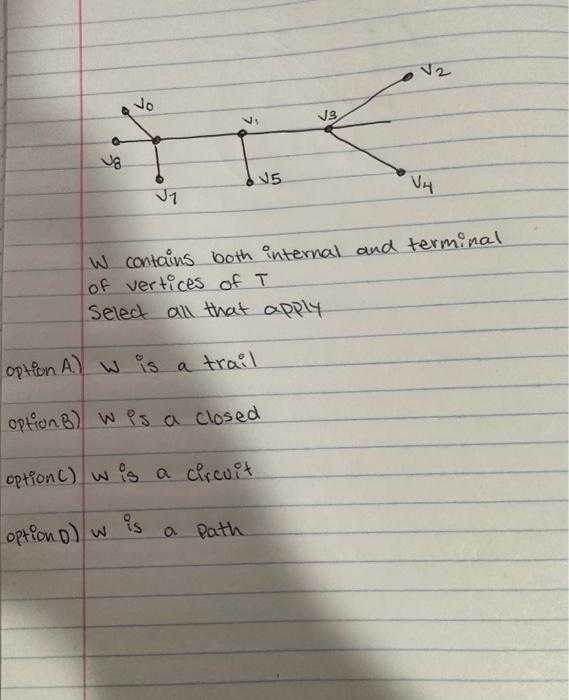 V2
V0
V1
V3
V8
V7
V5
V4
W contains both internal and terminal
of vertices of T
Select all that apply
option A.) W is a trail
option B) W is a closed
option C) W is a circuit
option D) W is a Path